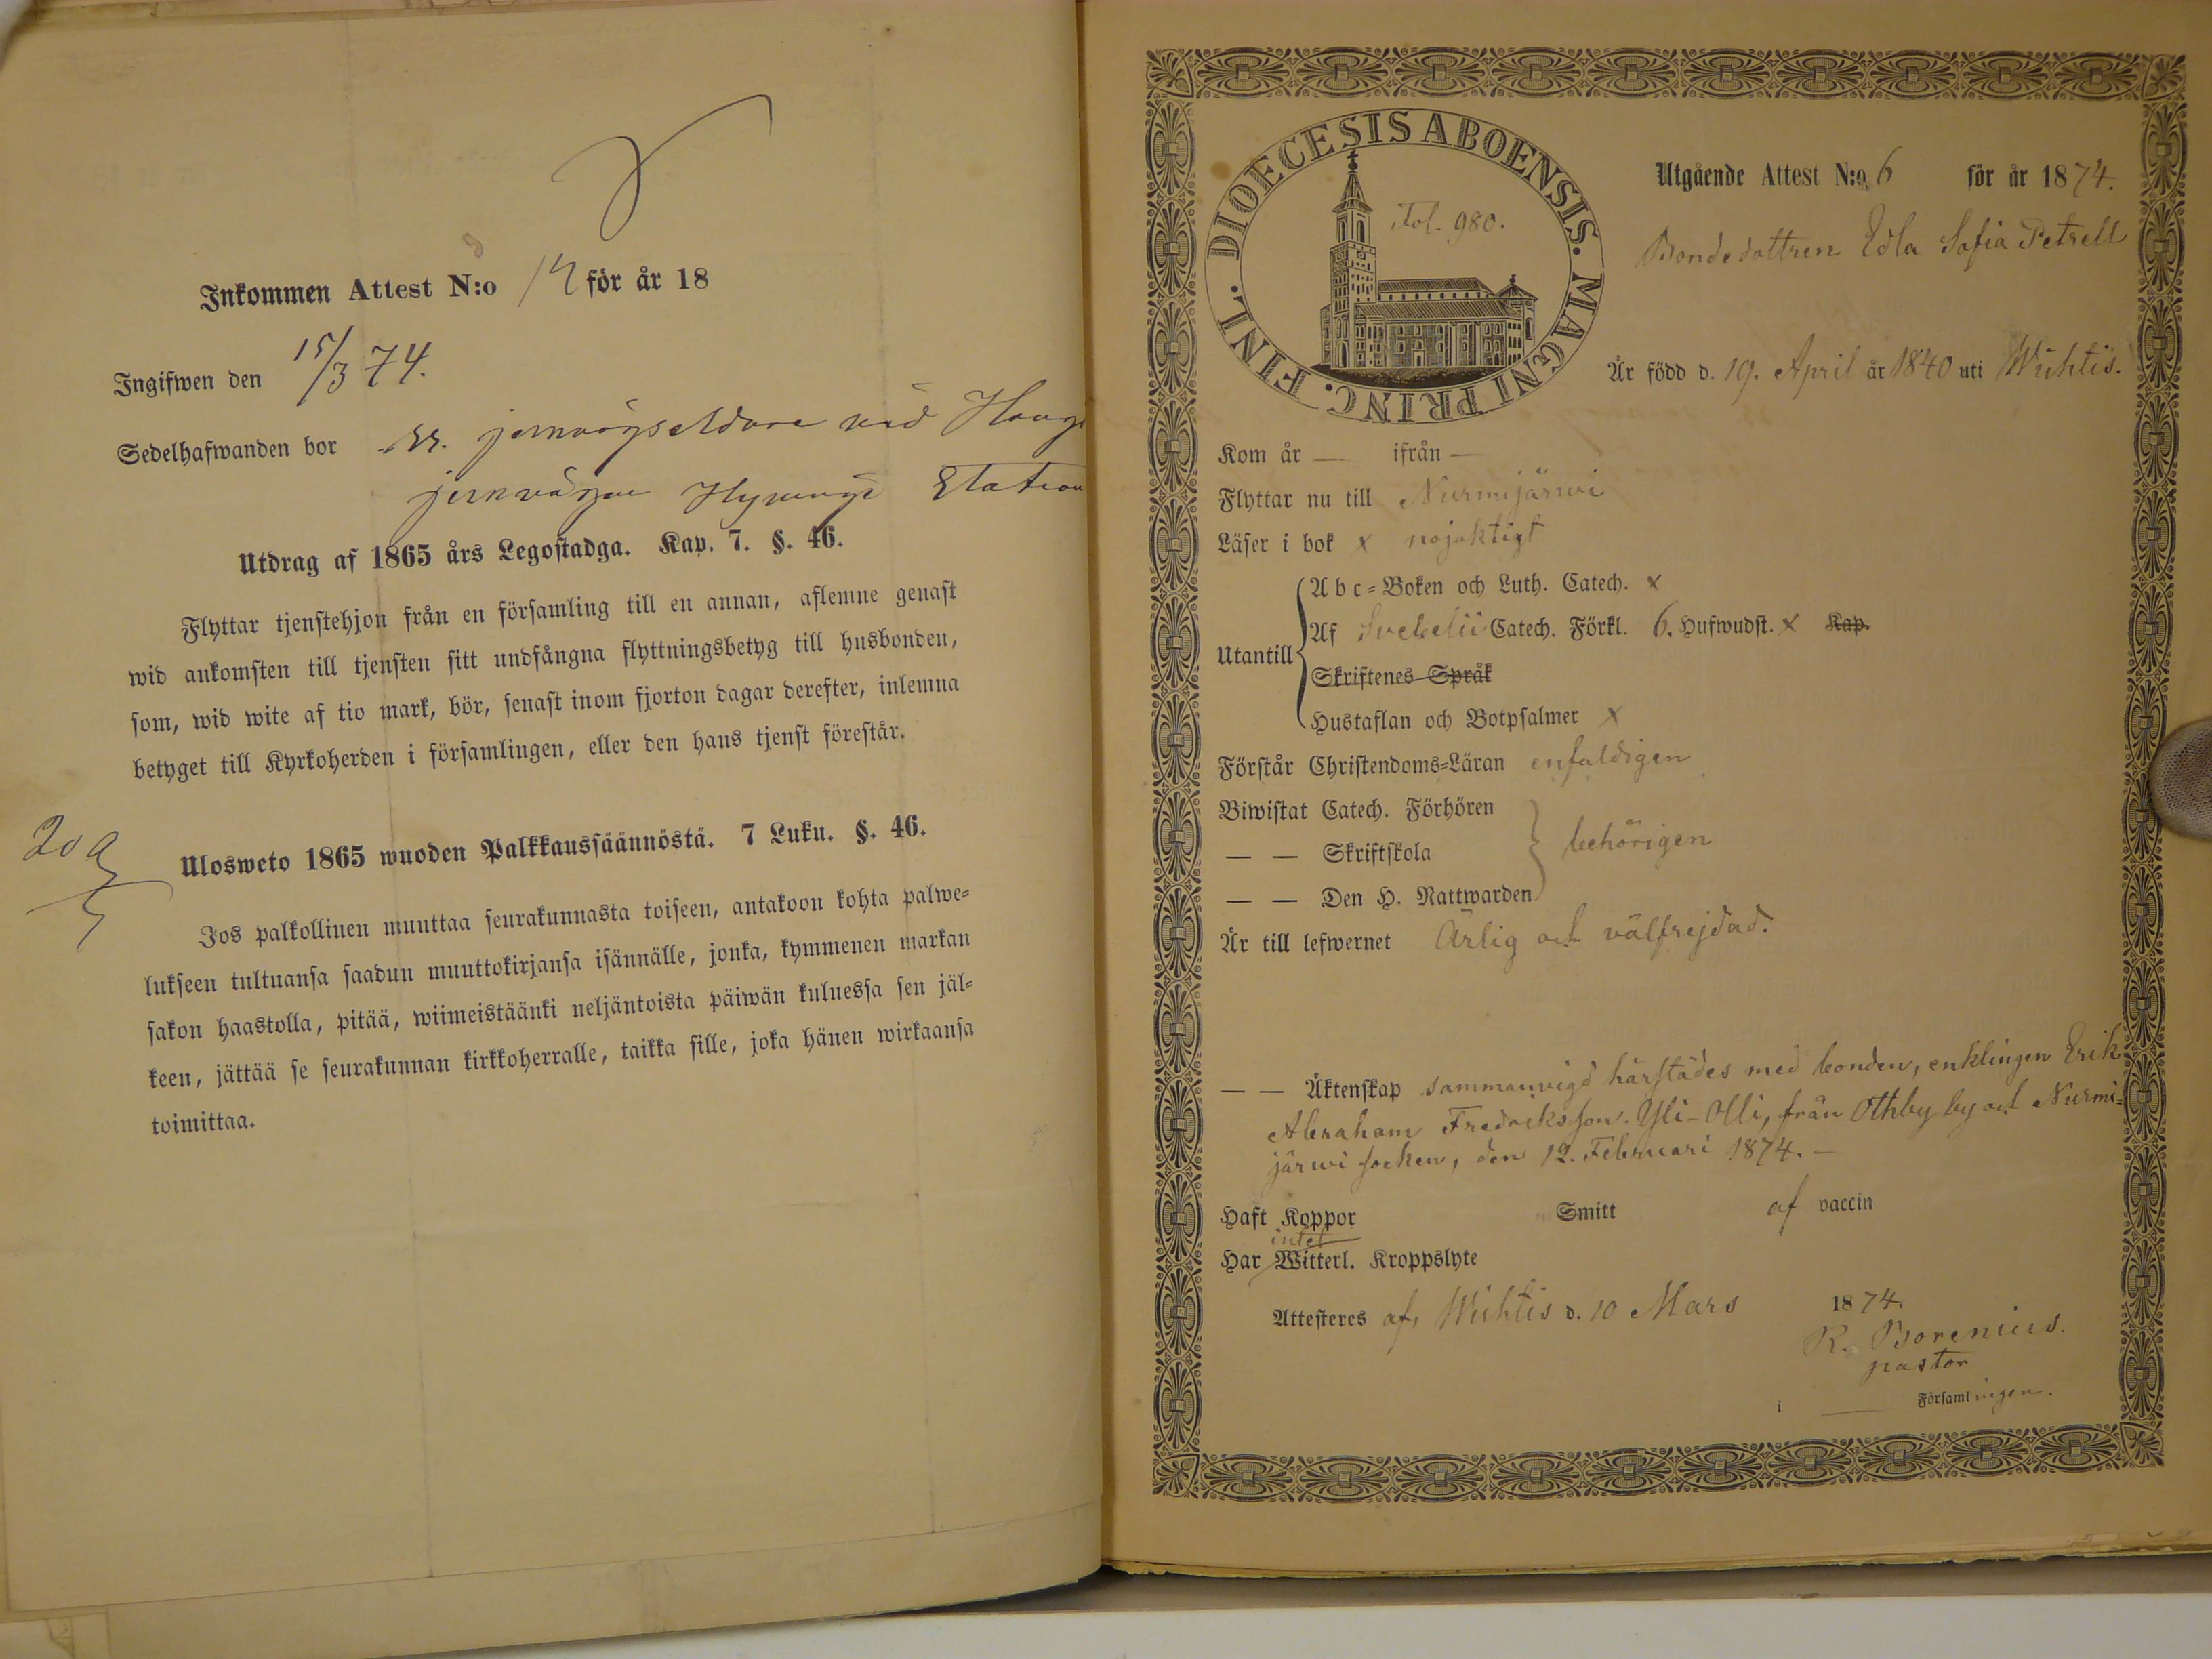 Inkommen Attest N:o 14 för år 18
Ingifwen den 15/3 74.
Sedelhafwanden bor jernvägseldare vid
jernvägen Station
Utdrag af 1865 års Legostadga. Kap. 7. §. 46.
Flyttar tjenstehjon från en församling till en annan, aflemne genast
wid ankomsten till tjensten sitt undfångna flyttningsbetyg till husbonden,
som, wid wite af tio mark, bör, senast inom fjorton dagar derefter, inlemna
betyget till Kyrkoherden i församlingen, eller den hans tjenst förestår.
Ulosweto 1865 wuoden Palkkaussäännöstä. 7 Luku. §. 46.
Jos palkollinen muuttaa seurakunnasta toiseen, antakoon kohta palwe-
lukseen tultuansa saadun muuttokirjansa isännälle, jonka, kymmenen markan
sakon haastolla, pitää, wiimeistäänki neljäntoista päiwän kuluessa sen jäl-
keen, jättää se seurakunnan kirkkoherralle, taikka sille, joka hänen wirkaansa
toimittaa.
DIOECESIS ABOENSIS. MAGNI PRINC. FINL.
Fol. 980.
Utgående Attest N:o 6 för år 1874.
Bondedottren Edla Sofia Petrell
Är född d. 19. April år 1840 uti Wichtis.
Kom år — ifrån —
Flyttar nu till Nurmijärwi
Läser i bok x nöjaktigt
Utantill
A b c-Boken och Luth. Catech. x
Af Svebelii Catech. Förkl. 6. Hufwudst. x Kap.
Skriftenes Språk
Hustaflan och Botpsalmer x
Förstår Christendoms-Läran enfaldigen
Biwistat Catech. Förhören
— — Skriftskola behörigen
— — Den H. Nattwarden
Är till lefwernet Ärlig och välfrejdad.
— — Äktenskap sammanvigd härstädes med bonden, enklingen Erik
Abraham Fredriksson Yli-Olli, från Othby by och Nurmi-
järwi socken, den 12. Februari 1874. —
Haft Koppor Smitt af vaccin
intet
Har Witterl. Kroppslyte
Attesteres af, Wichtis d. 10 Mars 1874.
R. Borenius.
pastor
i — Församlingen.